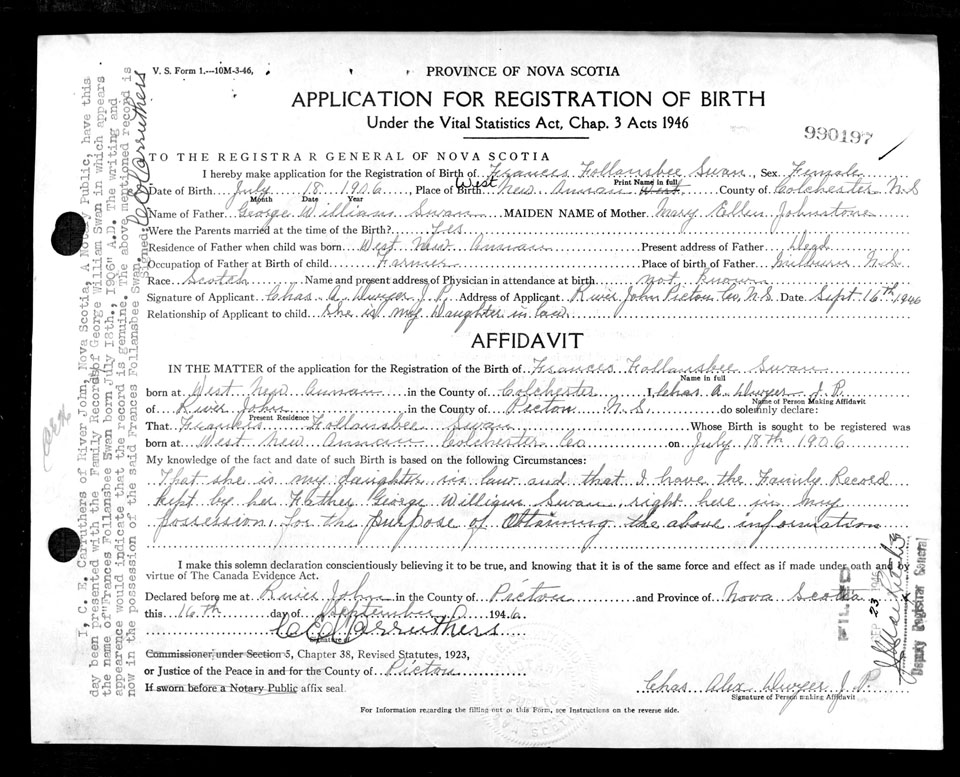 V. S. Form 1.—10M-3-46,
PROVINCE OF NOVA SCOTIA
APPLICATION FOR REGISTRATION OF BIRTH
Under the Vital Statistics Act, Chap. 3 Acts 1946
990197
TO THE REGISTRAR GENERAL OF NOVA SCOTIA
I hereby make application for the Registration of Birth of Frances Follansbee Swan, Sex Female
Print Name in full
Date of Birth July 18 1906, Place of Birth West New Annan West County of Colchester N.S
Month Date Year
Name of Father George William Swan MAIDEN NAME of Mother Mary Ellen Johnstone
Were the Parents married at the time of the Birth? Yes
Residence of Father when child was born West New Annan Present address of Father Dead
Occupation of Father at Birth of child Farmer Place of birth of Father Milburn N.S
Race Scotch Name and present address of Physician in attendance at birth not known
Signature of Applicant Chas A Dwyer J.P. Address of Applicant River John Pictou Co, N.S. Date Sept 16th 1946
Relationship of Applicant to child She is my Daughter in law
AFFIDAVIT
IN THE MATTER of the application for the Registration of the Birth of Frances Follansbee Swan
Name in full
born at West New Annan in the County of Colchester I, Chas A. Dwyer J.P.
Name of Person Making Affidavit
of River John in the County of Pictou N.S. do solemnly declare:
Present Residence
That Frances Follansbee Swan Whose Birth is sought to be registered was
born at West New Annan Colchester Co on July 18th 1906
My knowledge of the fact and date of such Birth is based on the following Circumstances:
That she is my daughter in law and that I have the Family Record
Kept by her Father George William Swan, right here in my
possession, for the purpose of Obtaining the above information
I make this solemn declaration conscientiously believing it to be true, and knowing that it is of the same force and effect as if made under oath and by
virtue of The Canada Evidence Act.
Declared before me at River John in the County of Pictou and Province of Nova Scotia
this 16th day of September 1946
C E Carruthers
Signature of
Commissioner under Section 5, Chapter 38, Revised Statutes, 1923,
or Justice of the Peace in and for the County of Pictou
If sworn before a Notary Public affix seal.
Chas Alex Dwyer J. P.
Signature of Person making Affidavit
For Information regarding the filling out of this Form, see Instructions on the reverse side.
FILED
SEP 23 1946
Deputy Registrar General
I, C. E. Carruthers of River John, Nova Scotia, A Notary Public, have this
day been presented with the Family Record of George William Swan in which appears
the name of "Frances Follansbee Swan born July 18th, 1906" A.D. The writing and
appearence would indicate that the record is genuine. The above mentioned record is
now in the possession of the said Frances Follansbee Swan.
Signed: C E Carruthers